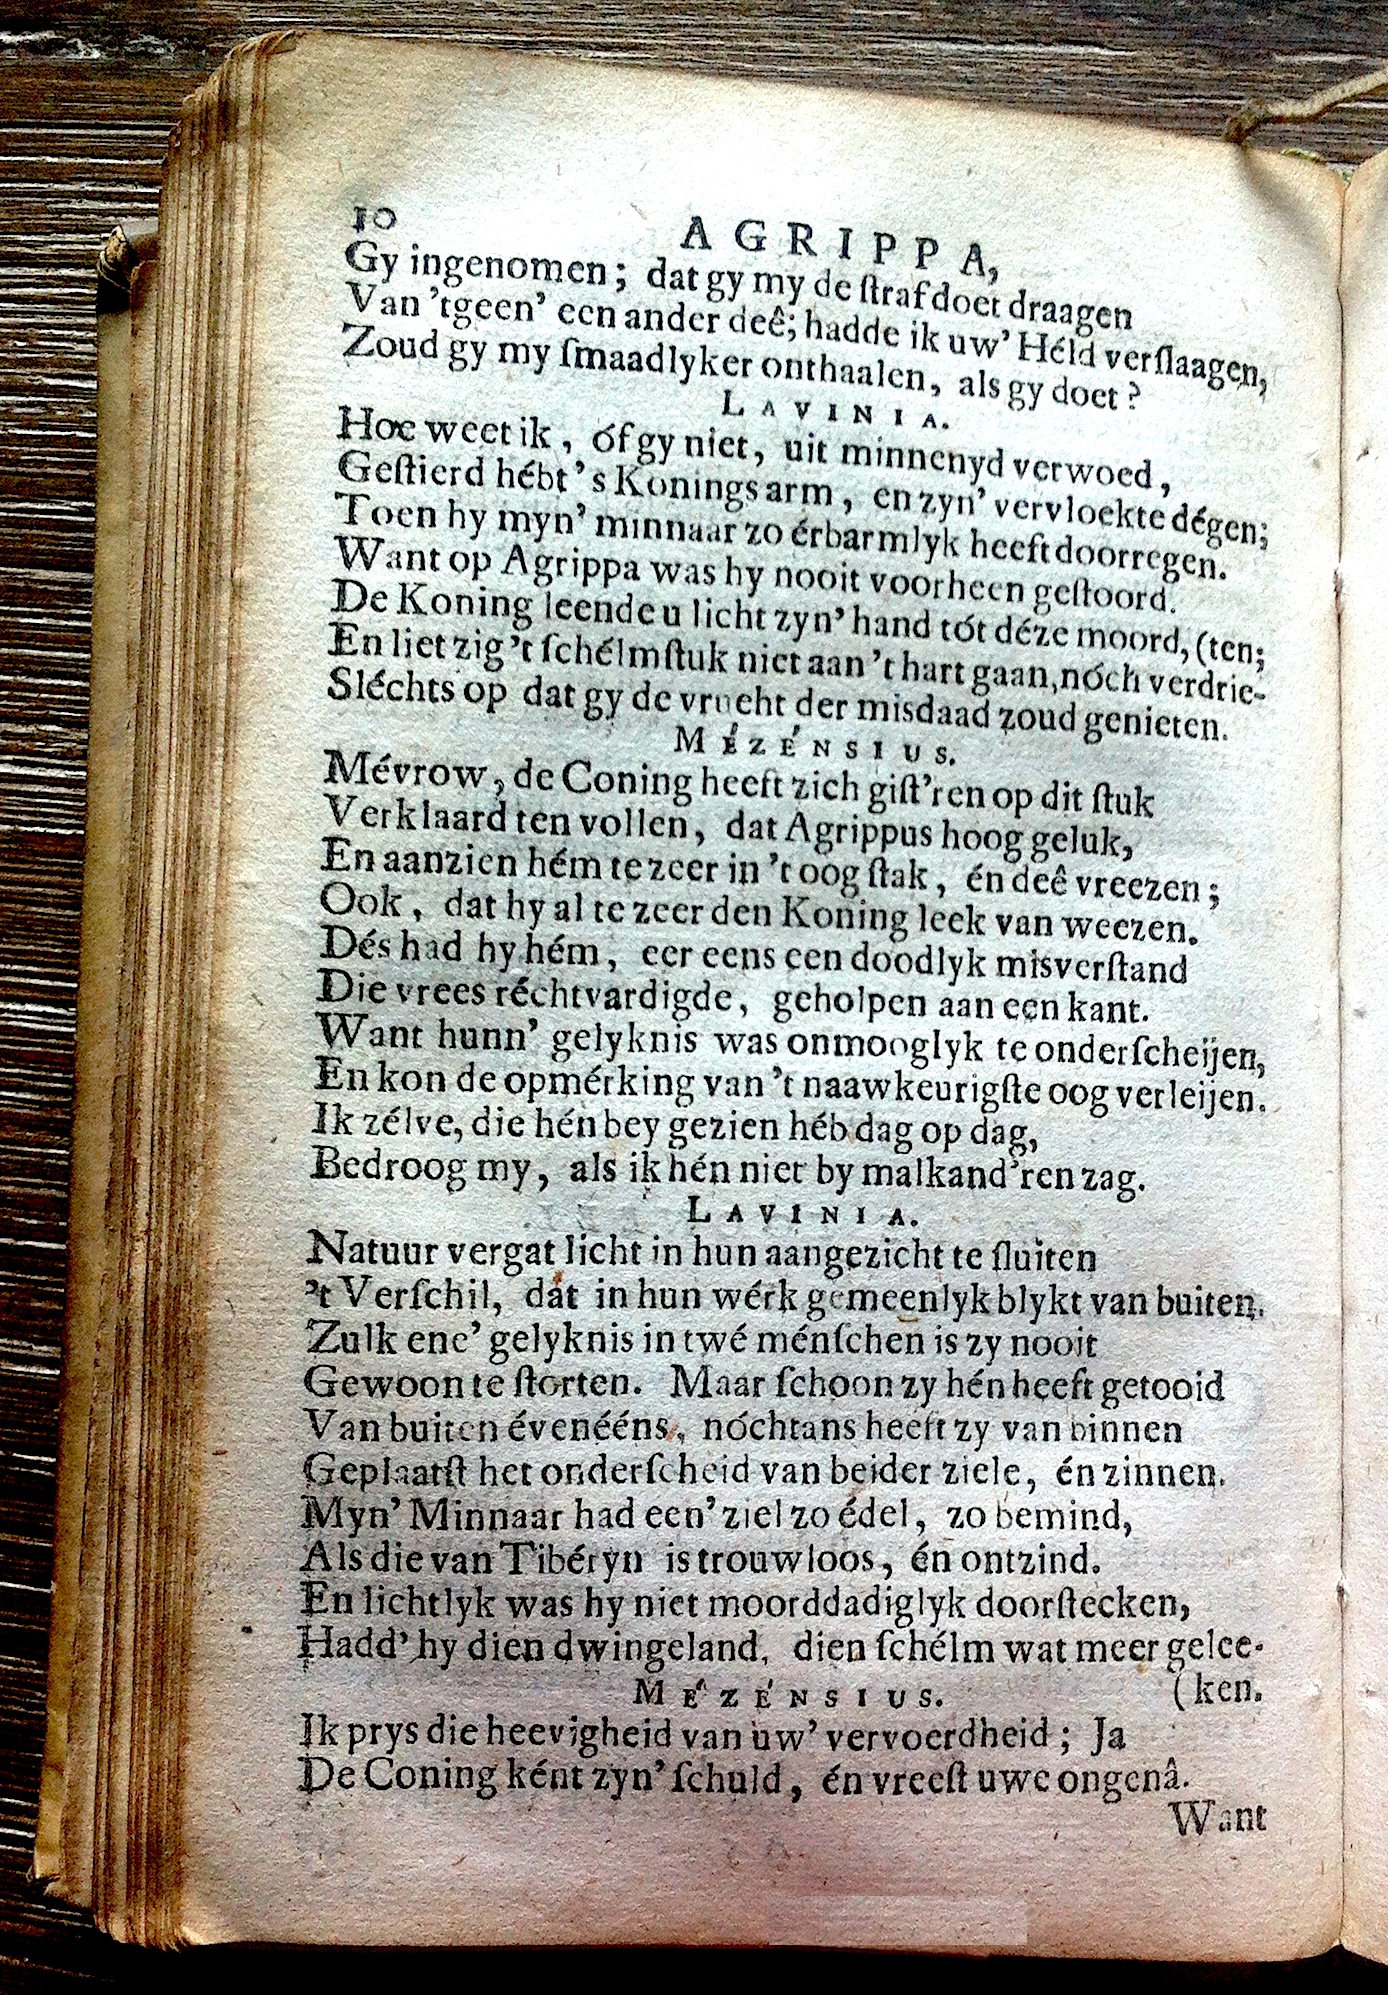 10 AGRIPPA,
Gy ingenomen; dat gy my de ſtraf doet draagen
Van 'tgeen' een ander deê; hadde ik uw' Héld verſlaagen,
Zoud gy my ſmaadlyker onthaalen, als gy doet?
LAVINIA.
Hoe weet ik, óf gy niet, uit minnenyd verwoed,
Geſtierd hébt 's Konings arm, en zyn' vervloekte dégen;
Toen hy myn' minnaar zo érbarmlyk heeft doorregen.
Want op Agrippa was hy nooit voorheen geſtoord.
De Koning leende u licht zyn' hand tót déze moord, (ten;
En liet zig 't ſchélmſtuk niet aan 't hart gaan, nóch verdrie-
Sléchts op dat gy de vrucht der misdaad zoud genieten.
MÉZÉNSIUS.
Mévrow, de Coning heeft zich giſt'ren op dit ſtuk
Verklaard ten vollen, dat Agrippus hoog geluk,
En aanzien hém te zeer in 't oog ſtak, én deê vreezen;
Ook, dat hy al te zeer den Koning leek van weezen.
Dés had hy hém, eer eens een doodlyk misverſtand
Die vrees réchtvardigde, geholpen aan een kant.
Want hunn' gelyknis was onmooglyk te onderſcheijen,
En kon de opmérking van 't naawkeurigſte oog verleijen.
Ik zélve, die hén bey gezien héb dag op dag,
Bedroog my, als ik hén niet by malkand'ren zag.
LAVINIA.
Natuur vergat licht in hun aangezicht te ſluiten
't Verſchil, dat in hun wérk gemeenlyk blykt van buiten.
Zulk ene' gelyknis in twé ménſchen is zy nooit
Gewoon te ſtorten. Maar ſchoon zy hén heeft getooid
Van buiten évenééns, nóchtans heeft zy van binnen
Geplaatſt het onderſcheid van beider ziele, én zinnen.
Myn' Minnaar had een' ziel zo édel, zo bemind,
Als die van Tibéryn is trouwloos, én ontzind.
En lichtlyk was hy niet moorddadiglyk doorſtecken,
Hadd' hy dien dwingeland, dien ſchélm wat meer gelee-
MÉZÉNSIUS. (ken.
Ik prys die heevigheid van uw' vervoerdheid; Ja
De Coningként zyn' ſchuld, én vreeſt uwe ongenâ.
Want